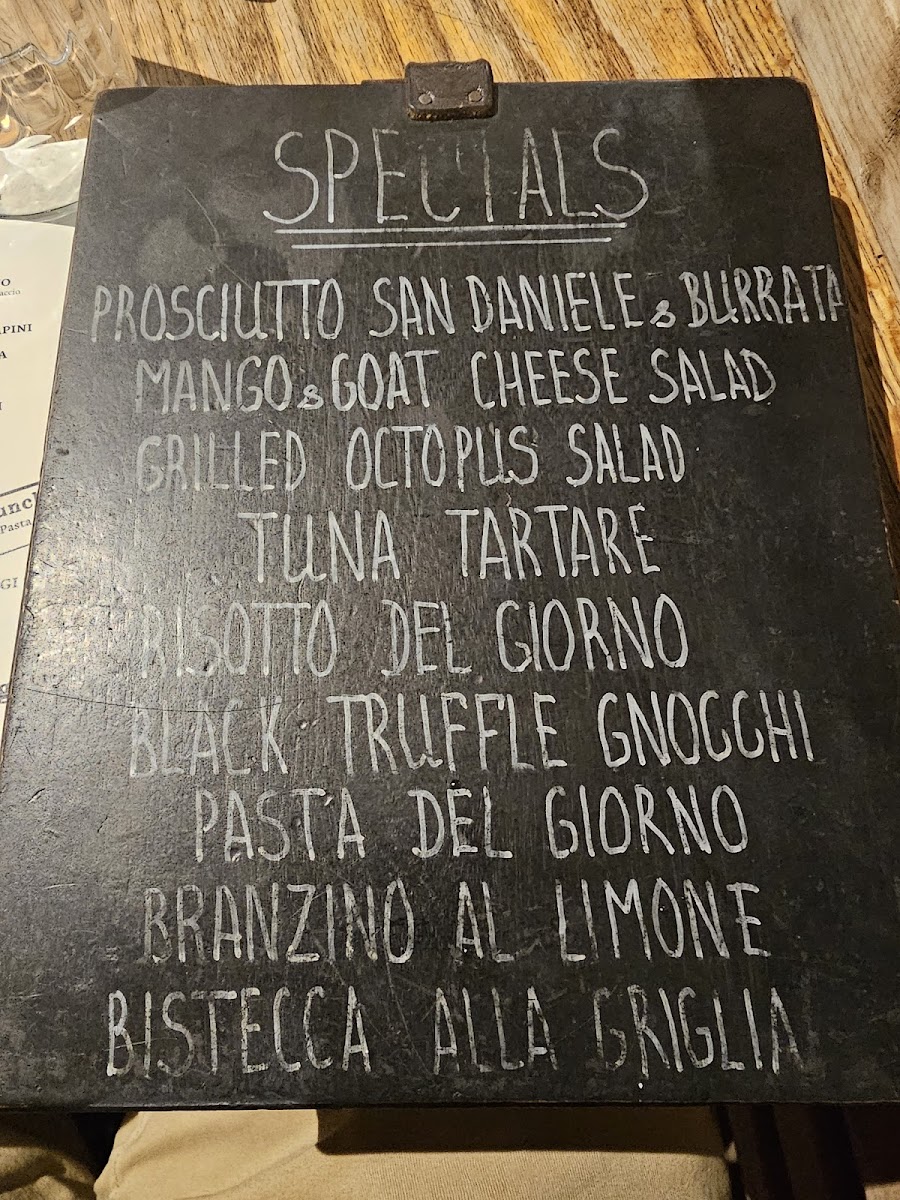 SPECIALS
PROSCIUTTO SAN DANIELE & BURRATA
MANGO & GOAT CHEESE SALAD
GRILLED OCTOPUS SALAD
TUNA TARTARE
RISOTTO DEL GIORNO
BLACK TRUFFLE GNOCCHI
PASTA DEL GIORNO
BRANZINO AL LIMONE
BISTECCA ALLA GRIGLIA